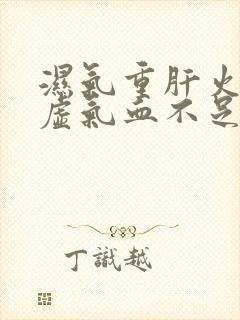 濕氣重肝火
虛氣血不足
丁識越